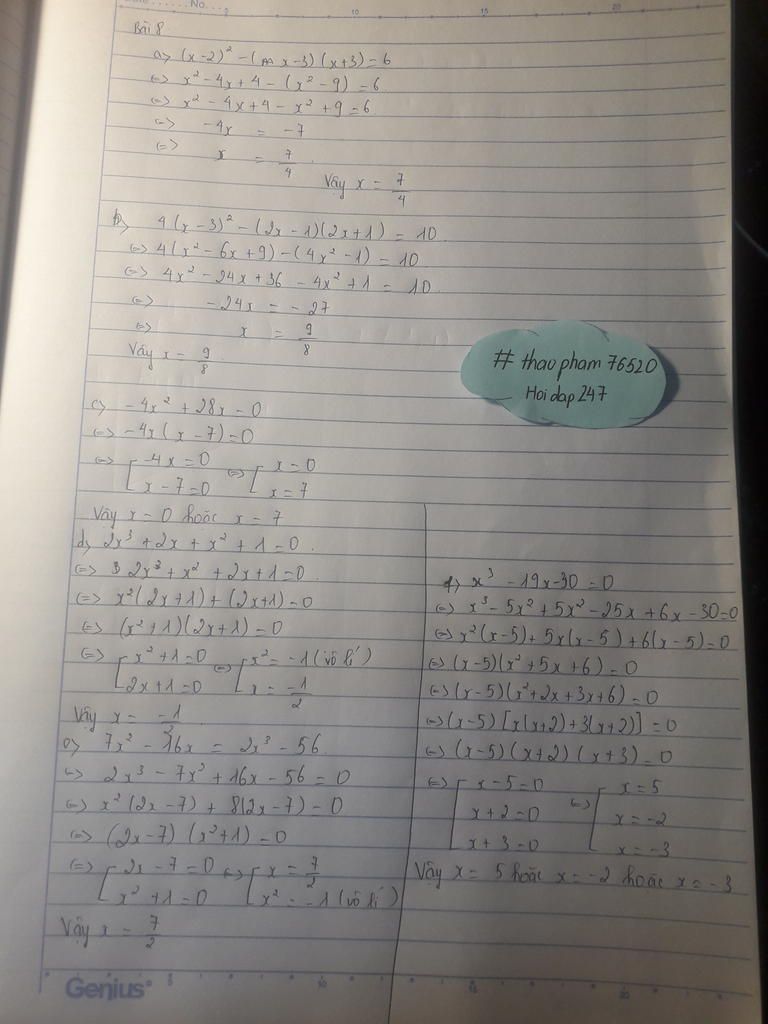 No.
Bài 8
a) (x-2)² - (x-3)(x+3) = 6
<=> x² - 4x + 4 - (x² - 9) = 6
<=> x² - 4x + 4 - x² + 9 = 6
<=> -4x = -7
<=> x = 7/4
Vậy x = 7/4
b) 4(x-3)² - (2x-1)(2x+1) = 10
<=> 4(x² - 6x + 9) - (4x² - 1) = 10
<=> 4x² - 24x + 36 - 4x² + 1 = 10
<=> -24x = -27
<=> x = 9/8
Vậy x = 9/8
# thaopham76520
Hoidap247
c) -4x² + 28x = 0
<=> -4x(x-7) = 0
<=> [ -4x = 0 <=> [ x = 0
x - 7 = 0 x = 7
Vậy x = 0 hoặc x = 7
d) 2x³ + 2x + x² + 1 = 0
<=> 2x³ + x² + 2x + 1 = 0
<=> x²(2x+1) + (2x+1) = 0
<=> (x²+1)(2x+1) = 0
<=> [ x² + 1 = 0 <=> [ x² = -1 (vô lí)
2x + 1 = 0 x = -1/2
Vậy x = -1/2
e) 7x² - 16x = 2x³ - 56
<=> 2x³ - 7x² + 16x - 56 = 0
<=> x²(2x-7) + 8(2x-7) = 0
<=> (2x-7)(x²+1) = 0
<=> [ 2x - 7 = 0 <=> [ x = 7/2
x² + 1 = 0 x² = -1 (vô lí)
Vậy x = 7/2
f) x³ - 19x - 30 = 0
<=> x³ - 5x² + 5x² - 25x + 6x - 30 = 0
<=> x²(x-5) + 5x(x-5) + 6(x-5) = 0
<=> (x-5)(x² + 5x + 6) = 0
<=> (x-5)(x² + 2x + 3x + 6) = 0
<=> (x-5)[x(x+2) + 3(x+2)] = 0
<=> (x-5)(x+2)(x+3) = 0
<=> [ x - 5 = 0 <=> [ x = 5
x + 2 = 0 x = -2
x + 3 = 0 x = -3
Vậy x = 5 hoặc x = -2 hoặc x = -3
Genius